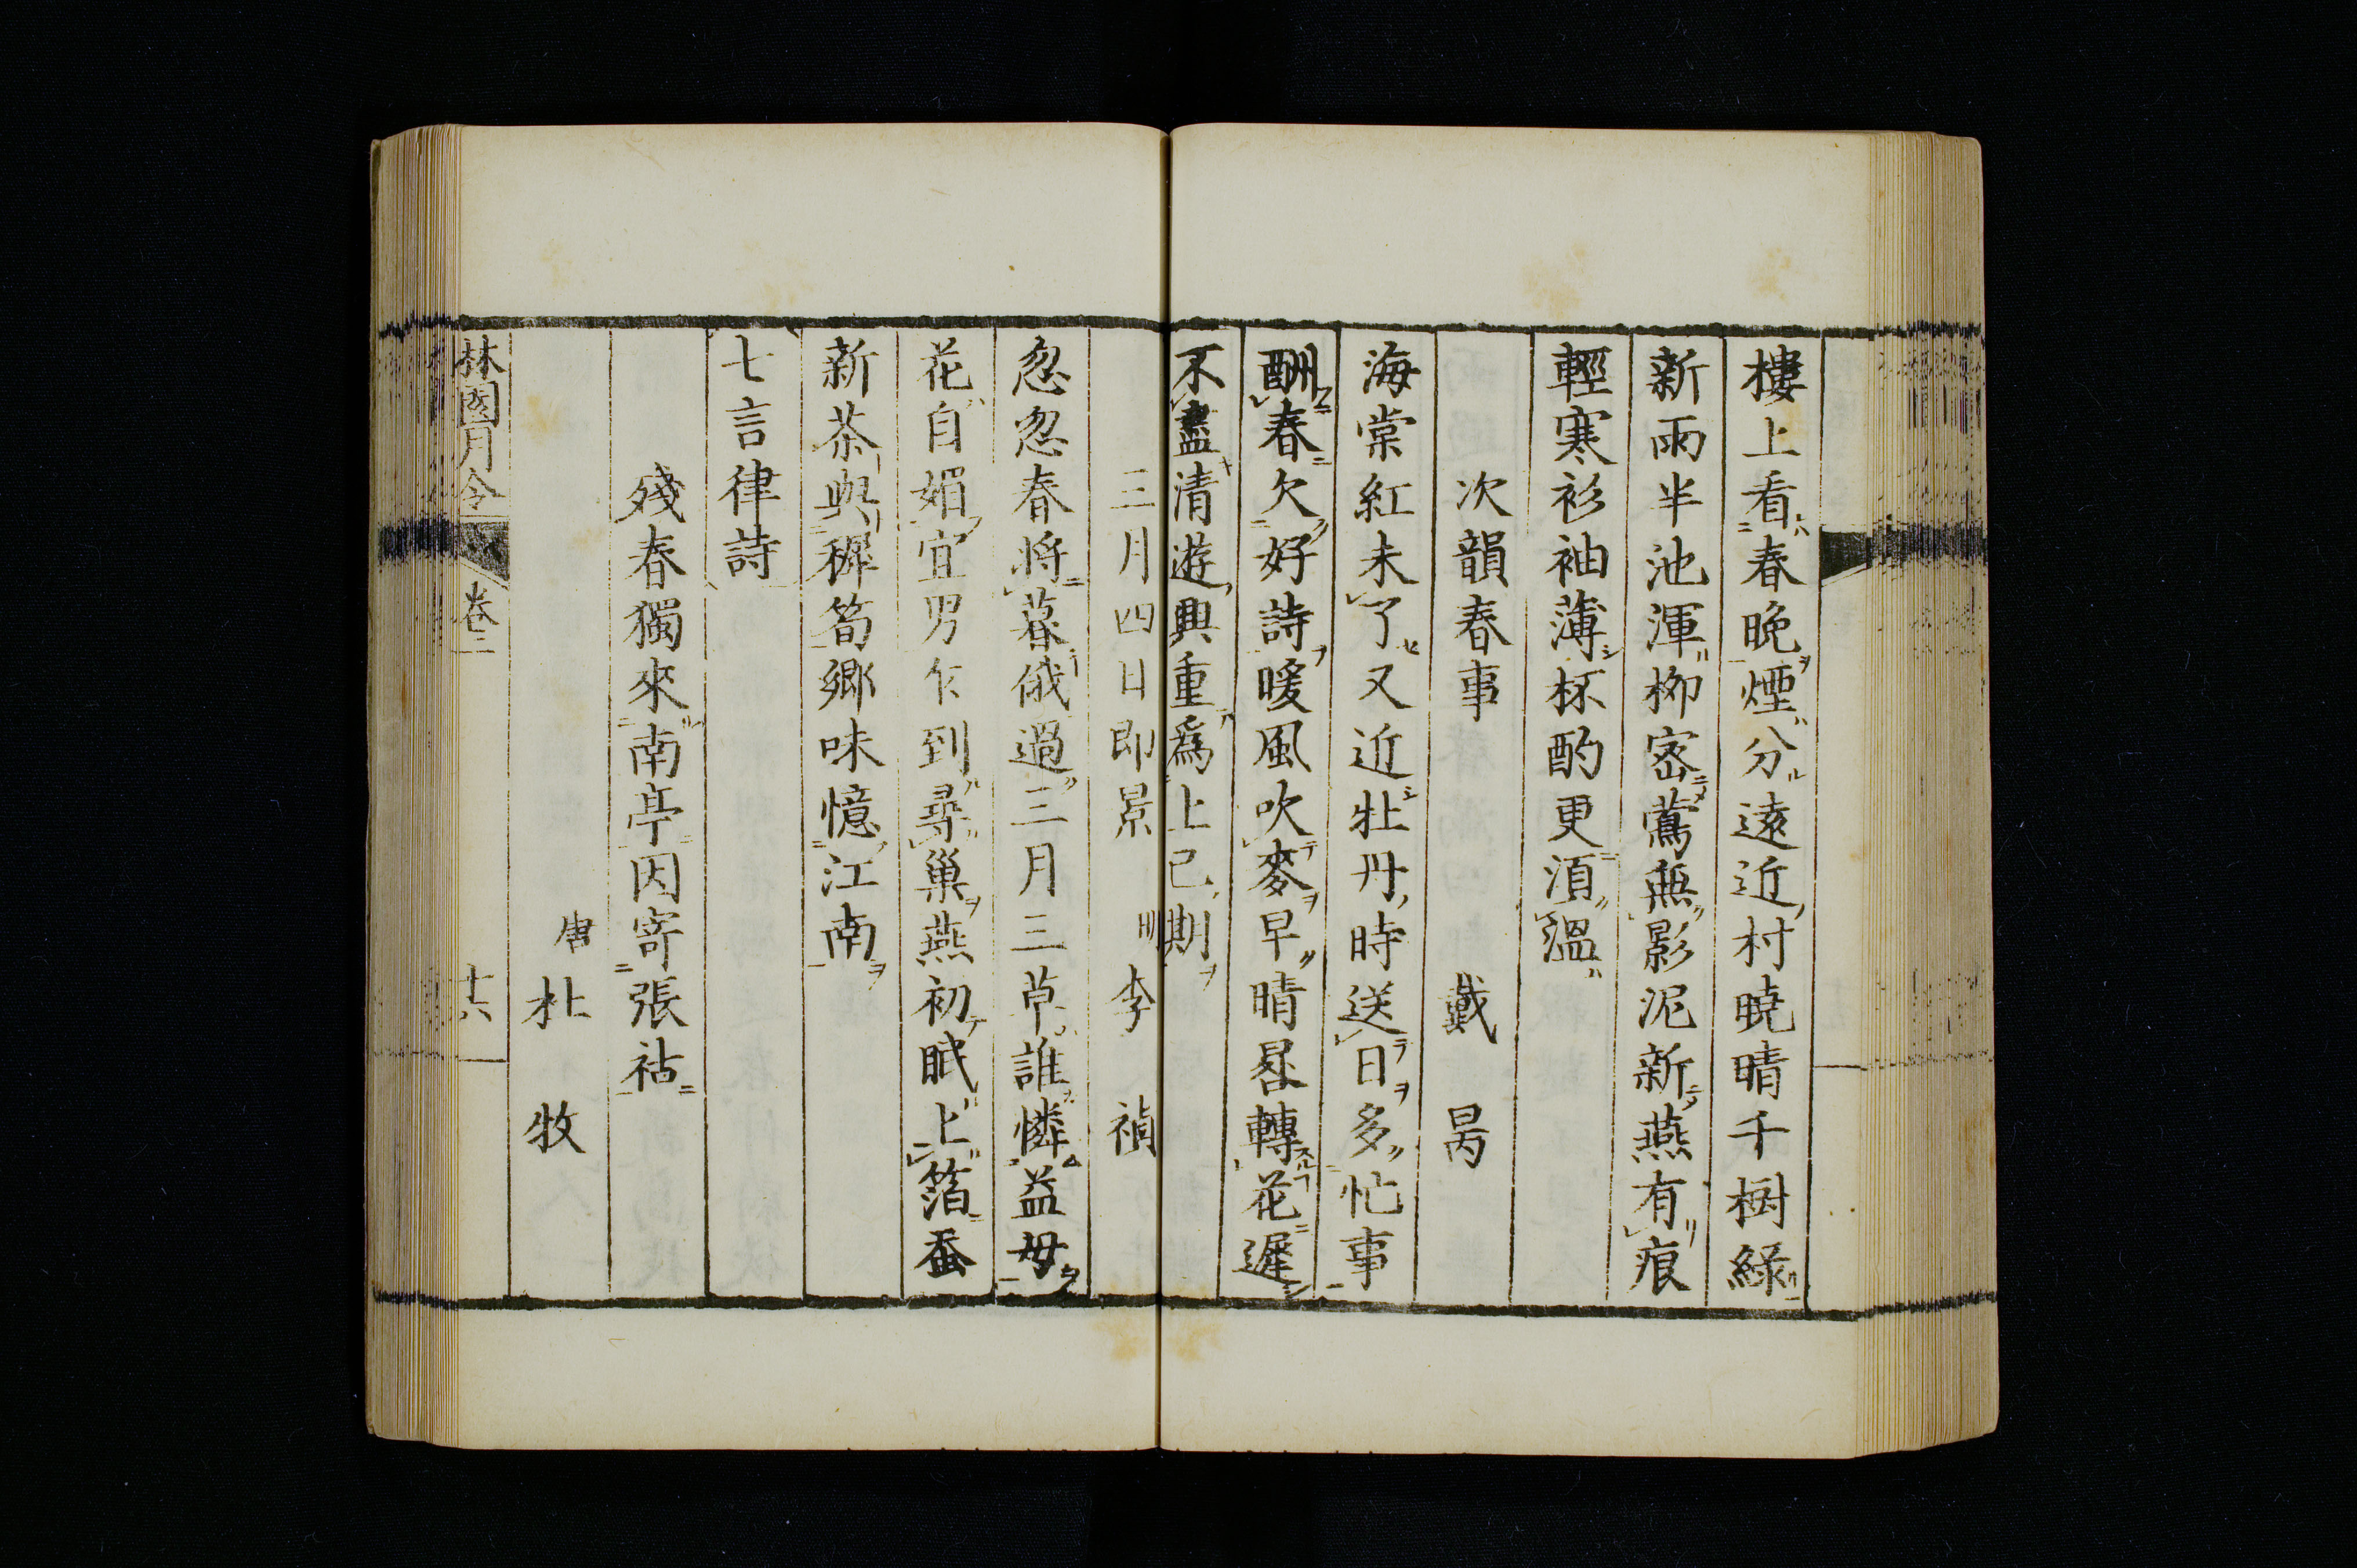 樓上看春晩煙分遠近村曉晴千樹綠
新雨半池渾栁宻鶯無影泥新燕有痕
輕寒衫袖薄杯酌更湏溫
次韻春事 戴昺
海棠紅未了又近牡丹時送日多忙事
酬春欠好詩暖風吹麥早晴晷轉花遲
不盡清遊興重爲上已期
三月四日即景 明 李禎
忽忽春將暮俄過三月三草誰憐益母
花自媚宜男乍到尋巢燕初眠上箔蚕
新茶與稺筍鄉味憶江南
七言律詩
殘春獨來南亭因寄張祜
唐 杜牧
林園月令 卷二 十六